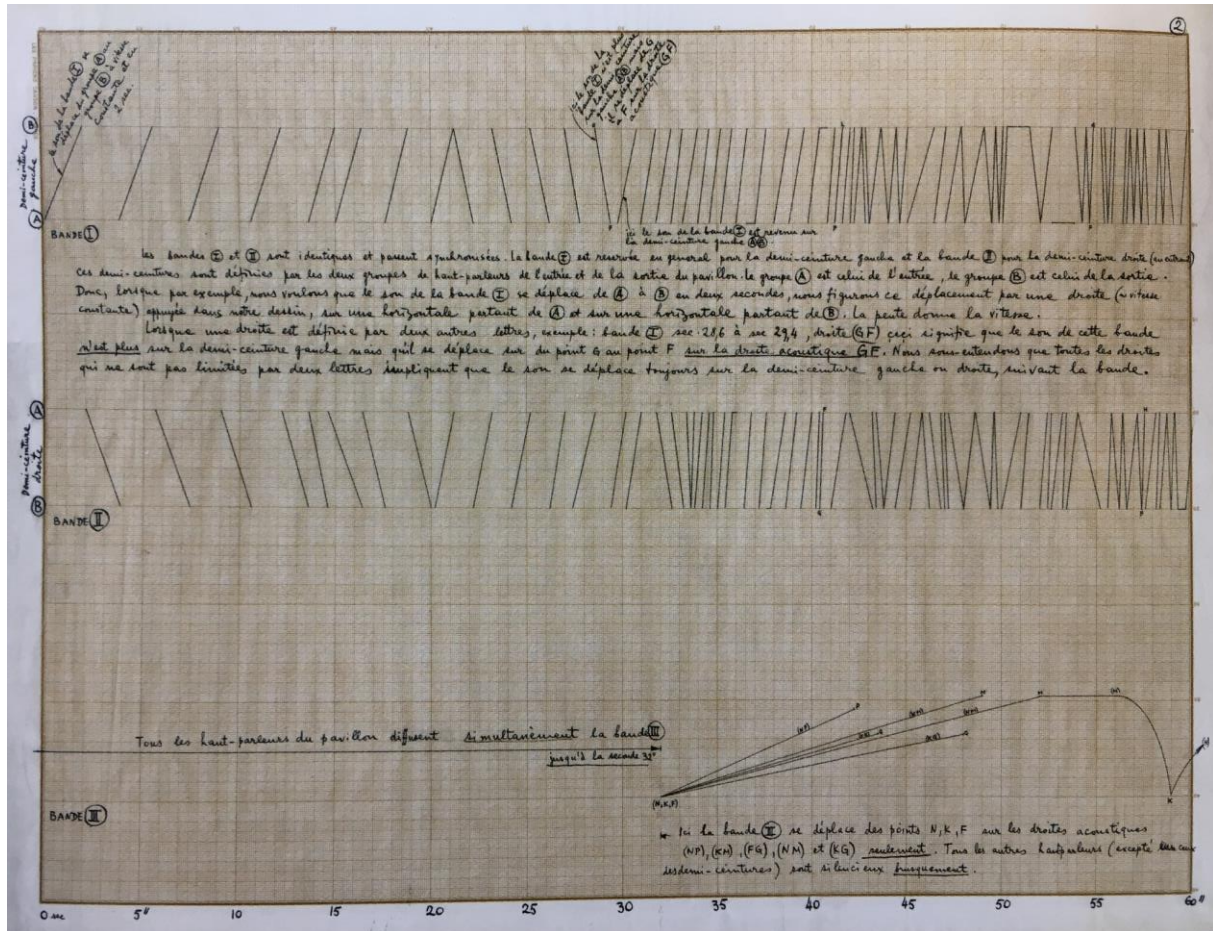 ②
le son de la bande Ⓘ se
déplace du groupe Ⓐ au
groupe Ⓑ à vitesse
constante et en
2 sec.
ici le son de la
bande Ⓘ n'est plus
sur la demi-ceinture
gauche ⒶⒷ mais
il se déplace de G
à F sur la droite
acoustique (GF)
Ⓑ
Demi-ceinture
gauche
Ⓐ
BANDE Ⓘ
ici le son de la bande Ⓘ est revenu sur
la demi-ceinture gauche ⒶⒷ.
Les bandes Ⓘ et Ⅱ sont identiques et passent synchronisées. La bande Ⓘ est reservée en general pour la demi-ceinture gauche et la bande Ⅱ pour la demi-ceinture droite (en entrant)
ces demi-ceintures sont définies par les deux groupes de haut-parleurs de l'entrée et de la sortie du pavillon. le groupe Ⓐ est celui de l'entrée, le groupe Ⓑ est celui de la sortie.
Donc, lorsque par exemple, nous voulons que le son de la bande Ⓘ se déplace de Ⓐ à Ⓑ en deux secondes, nous figurons ce déplacement par une droite (= vitesse
constante) appuyée dans notre dessin, sur une horizontale partant de Ⓐ et sur une horizontale partant de Ⓑ. La pente donne la vitesse.
Lorsque une droite est définie par deux autres lettres, exemple: bande Ⓘ sec. 28,6 à sec 29,4, droite (GF) ceci signifie que le son de cette bande
n'est plus sur la demi-ceinture gauche mais qu'il se déplace sur du point G au point F sur la droite acoustique GF. Nous sous-entendons que toutes les droites
qui ne sont pas limitées par deux lettres impliquent que le son se déplace toujours sur la demi-ceinture gauche ou droite, suivant la bande.
Ⓐ
Demi-ceinture
droite
Ⓑ
BANDE Ⅱ
Tous les haut-parleurs du pavillon diffusent simultanément la bande Ⅲ
jusqu'à la seconde 32e
(N,K,F)
(NP)
P
(KM)
M
(NM)
M
(N)
K
BANDE Ⅲ
Ici la bande Ⅲ se déplace des points N, K, F sur les droites acoustiques
(NP), (KM), (FG), (NM) et (KG) seulement. Tous les autres hautparleurs (excepté ceux
des demi-ceintures) sont silencieux brusquement.
0 sec 5" 10 15 20 25 30 35 40 45 50 55 60"